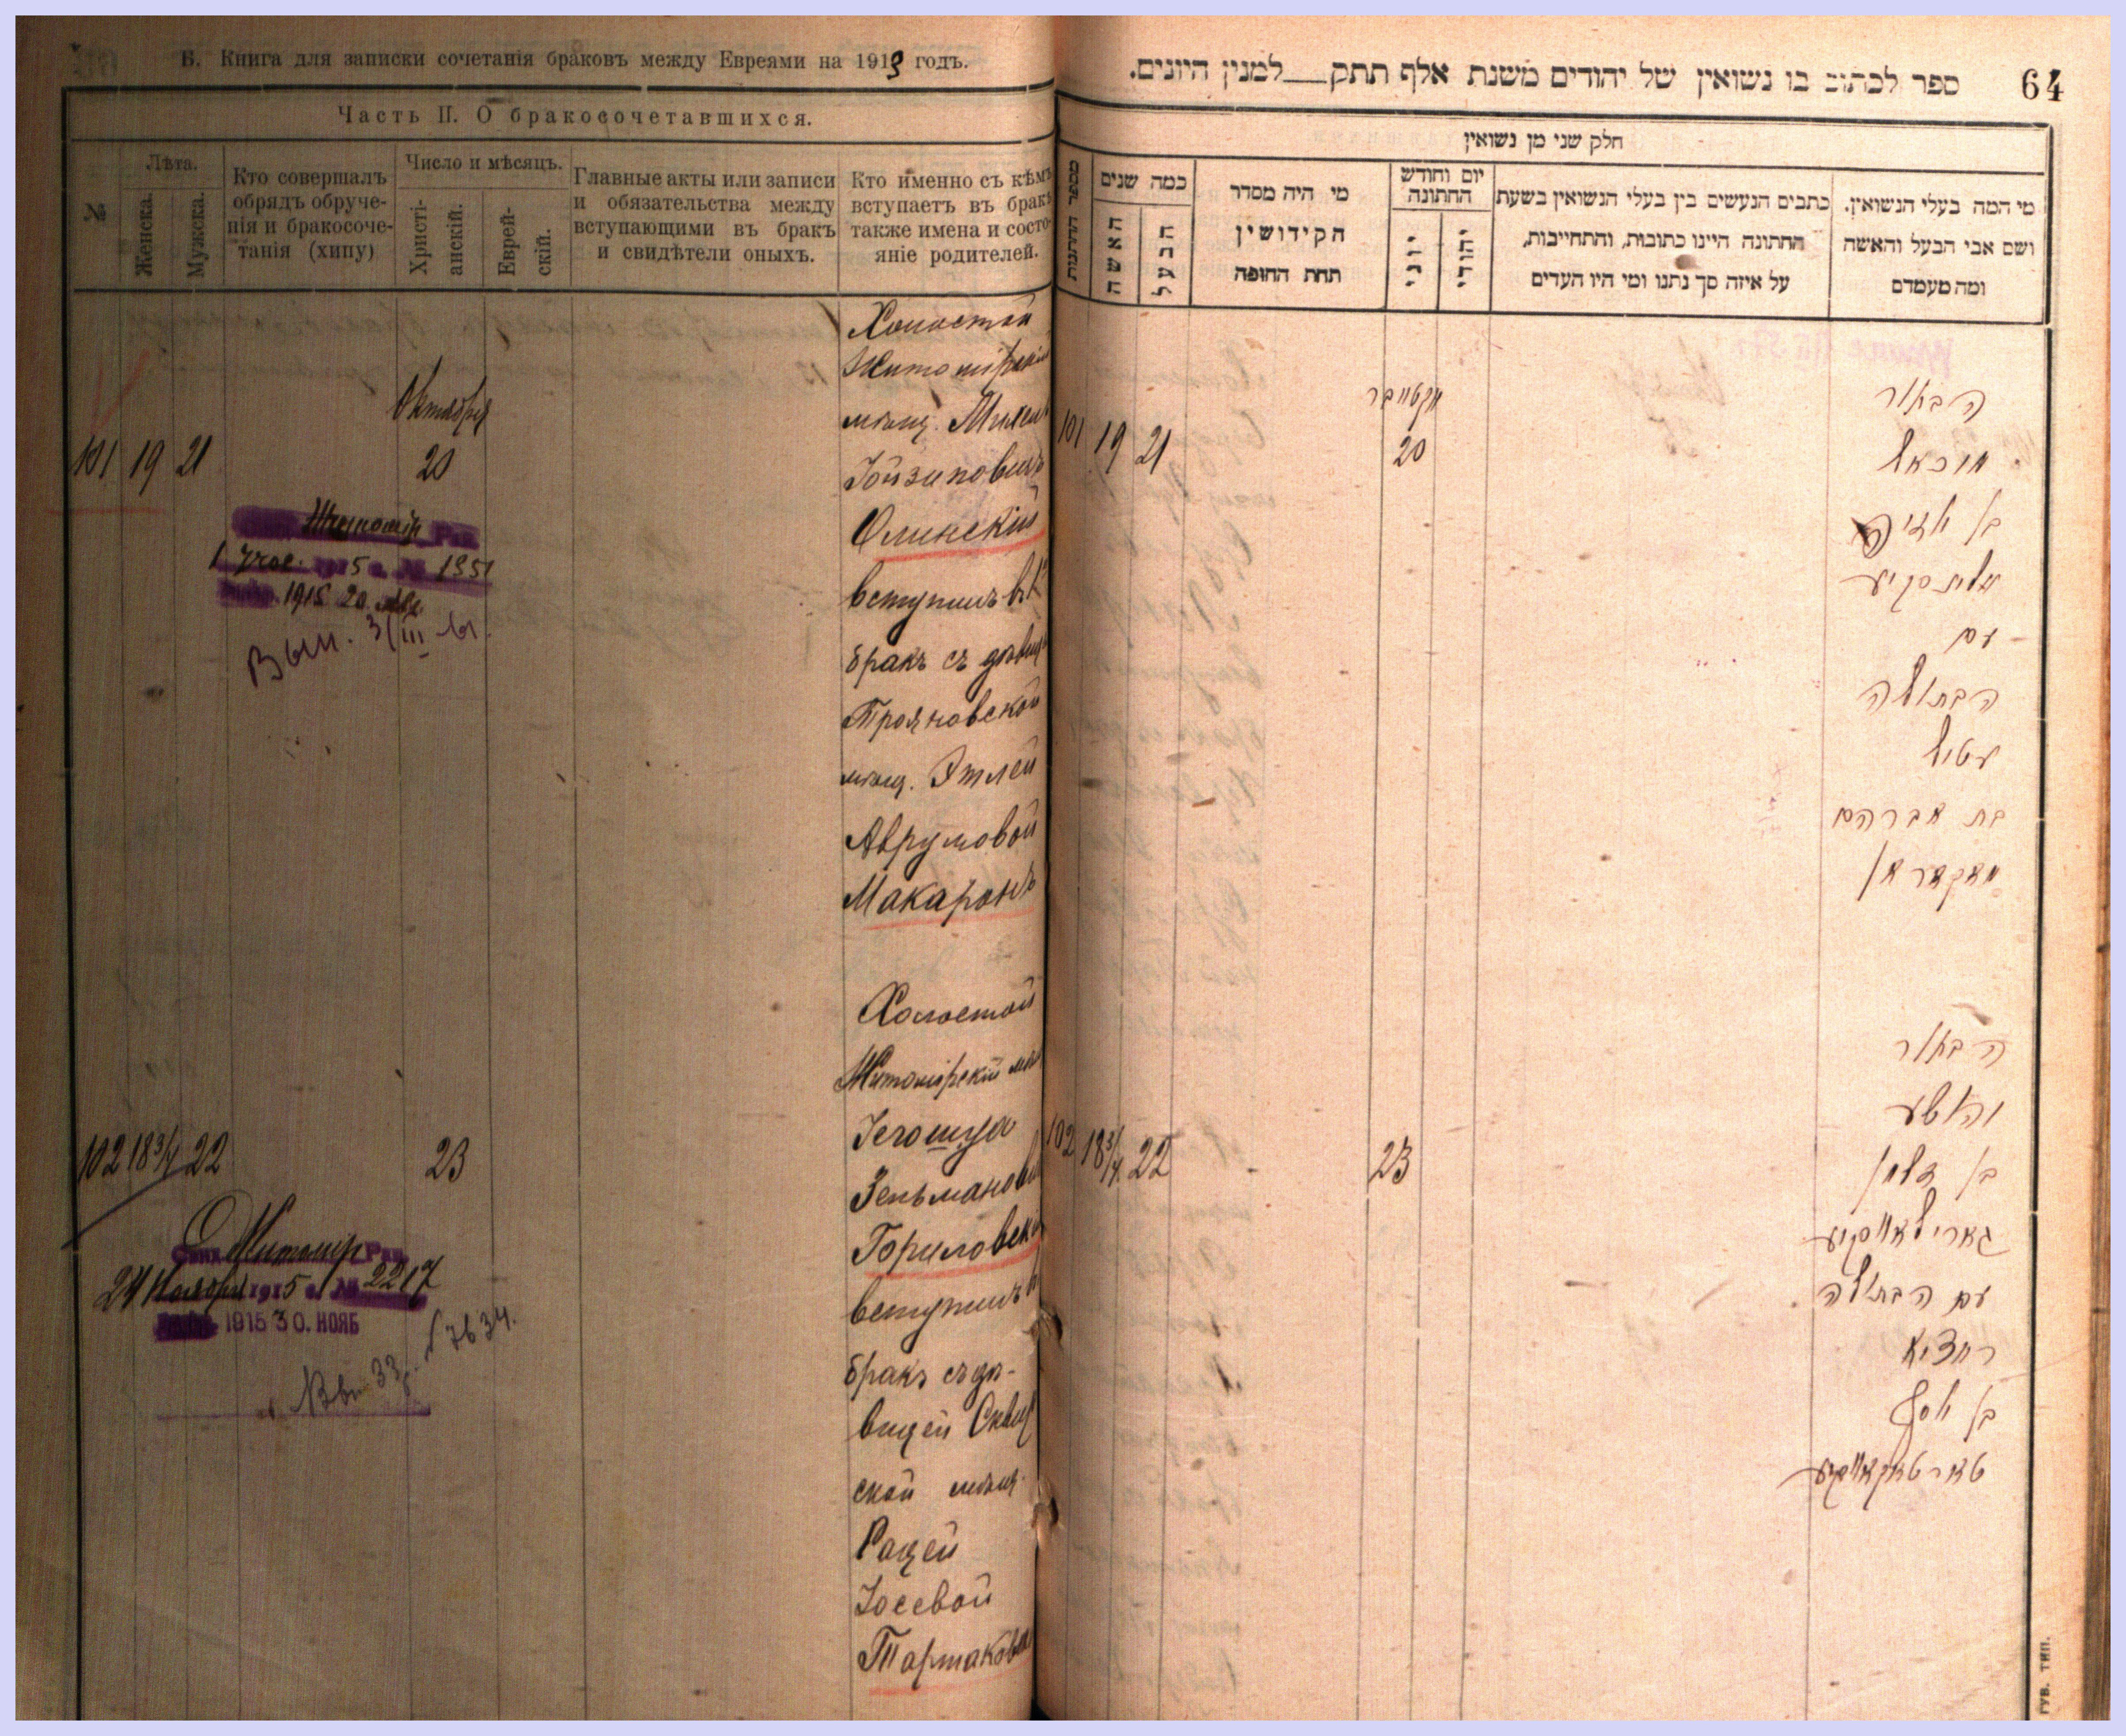 Б. Книга для записки сочетанія браковъ между Евреями на 1913 годъ.
Часть II. О бракосочетавшихся.
№
Лѣта.
Женска.
Мужска.
Кто совершалъ
обрядъ обруче-
нія и бракосоче-
танія (хипу)
Число и мѣсяцъ.
Христі-
анскій.
Еврей-
скій.
Главные акты или записи
и обязательства между
вступающими въ бракъ
и свидѣтели оныхъ.
Кто именно съ кѣмъ
вступаетъ въ бракъ
также имена и состо-
яніе родителей.
101 19 21
Октября
20
Житомір Рав
1 Учас. 1915 г. № 1351
1915 20
Вып. 31/III
Холостой
Житомірскій
мѣщ.
Олинскій
вступилъ въ
бракъ съ дѣвиц
Трояновской
мѣщ. Этлей
Аврумовой
Макаронъ
102 18 3/4 22
23
Житомір Рав
24 Ноября 1915 г. № 2217
1915 30. НОЯБ
7634.
Холостой
Житомірскій мѣщ
Іегошуа
Зельманов
Гориловск
вступилъ в
бракъ съ дѣ-
вицей Сквир
ской мѣщ.
Рацей
Іосевой
Тартаковск
ספר לכתוב בו נשואין של יהודים משנת אלף תתק__למנין היונים.
64
חלק שני מן נשואין
מספר החתונות
כמה שנים
האשה
הבעל
מי היה מסדר
הקידושין
תחת החופה
יום וחודש
החתונה
יוני
יהודי
כתבים הנעשים בין בעלי הנשואין בשעת
החתונה היינו כתובות, והתחייבות,
על איזה סך נתנו ומי היו העדים
מי המה בעלי הנשואין.
ושם אבי הבעל והאשה
ומה מעמדם
101 19 21
אקטיובר
20
הבחור
מיכאל
בן
אלינסקיע
עם
הבתולה
עטיל
בת אברהם
מאקאראן
102 18 3/4 22
23
הבחור
יהושע
בן זלמן
גארילאווסקיע
עם הבתולה
רחציא
בן יוסף
טארטאקאווסקיע
ГУБ. ТИП.